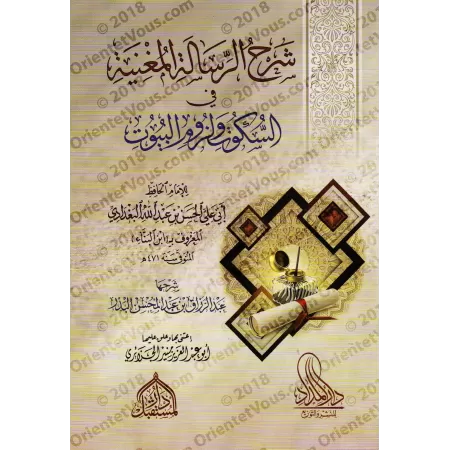 شرح الرسالة المغنية
في
السكوت ولزوم البيوت
للإمام الحافظ
أبي علي الحسن بن عبد الله البغدادي
المعروف بـ (ابن البناء)
المتوفى سنة ٤٧١هـ
شرحها
عبد الرزاق بن عبد المحسن البدر
اعتنى بها وعلق عليها
أبو عبد العزيز منير الجزائري
دار المستقبل
دار المداد
للنشر والتوزيع
© 2018 OrientetVous.com